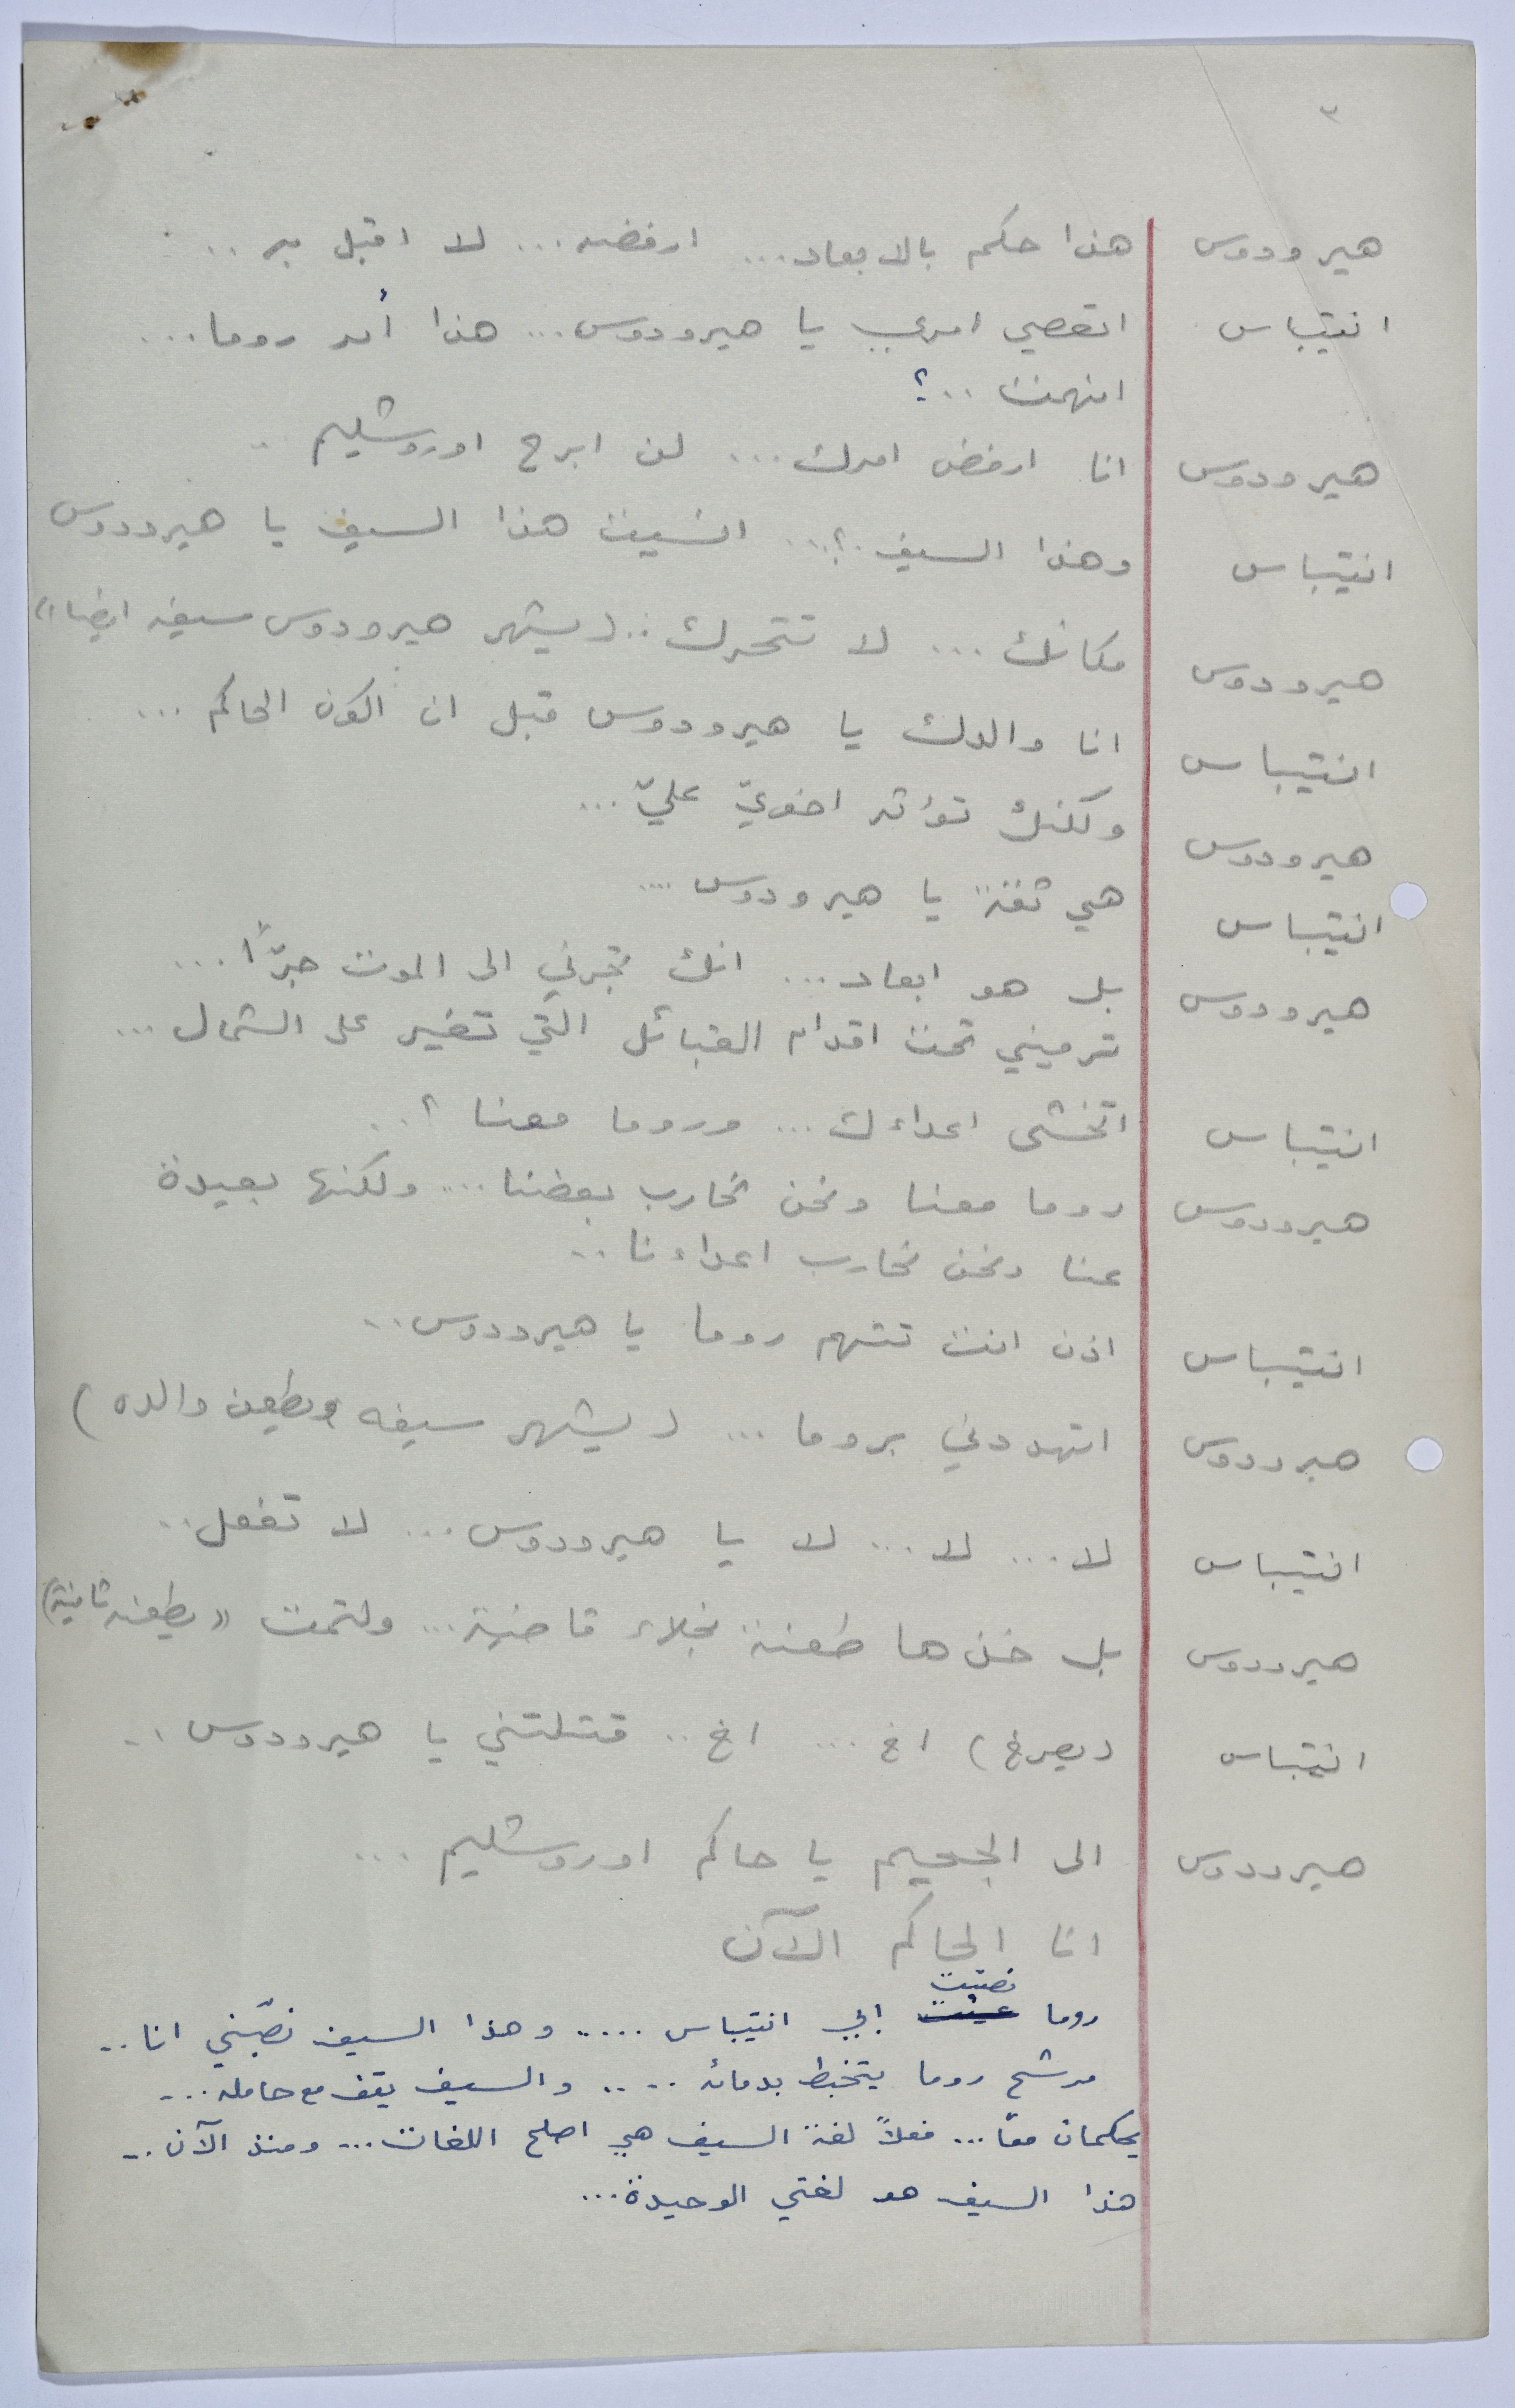 ٣
هيرودوس هذا حكم بالابعاد... ارفضه... لا اقبل به ..
انتيباس اتعصي امري يا هيرودوس... هذا أمر روما...
افهمت ..؟
هيرودوس انا ارفض امرك... لن ابرح اوروشليم ..
انتيباس وهذا السيف..؟.. انسيت هذا السيف يا هيرودوس
هيرودوس مكانك... لا تتحرك.. (يشهر هيرودوس سيفه ايضا")
انتيباس انا والدك يا هيرودوس قبل ان اكون الحاكم ...
هيرودوس ولكنك تؤثر اخويّ عليّ...
انتيباس هي ثقة يا هيرودوس ....
هيرودوس بل هو ابعاد... انك تجرني الى الموت جرًّا...
ترميني تحت اقدام القبائل التي تغير على الشمال ...
انتيباس اتخشى اعداءك... وروما معنا ؟..
هيرودوس روما معنا ونحن نحارب بعضنا.... ولكنها بعيدة
عنا ونحن نحارب اعداءنا ..
انتيباس اذن انت تتهم روما يا هيرودوس..
هيرودوس اتهددني بروما ... (يشهر سيفه ويطعن والده)
انتيباس لا... لا... لا يا هيرودوس... لا تفعل..
هيرودوس بل خذها طعنة نجلاء قاضية... ولتمت "(يطعنه ثانية)
انتيباس (يصرخ) اخ ... اخ .. قتلتني يا هيرودوس ..
هيرودوس الى الجحيم يا حاكم اوروشليم ...
انا الحاكم الآن
نصّبت
روما عينت ابي انتيباس ..... وهذا السيف نصّبني انا ..
مرشح روما يتخبط بدمائه ..... والسيف يقف مع حامله...
يحكمان معًا... فعلاً لغة السيف هي اصلح اللغات... ومنذ الآن ..
هذا السيف هو لغتي الوحيدة...